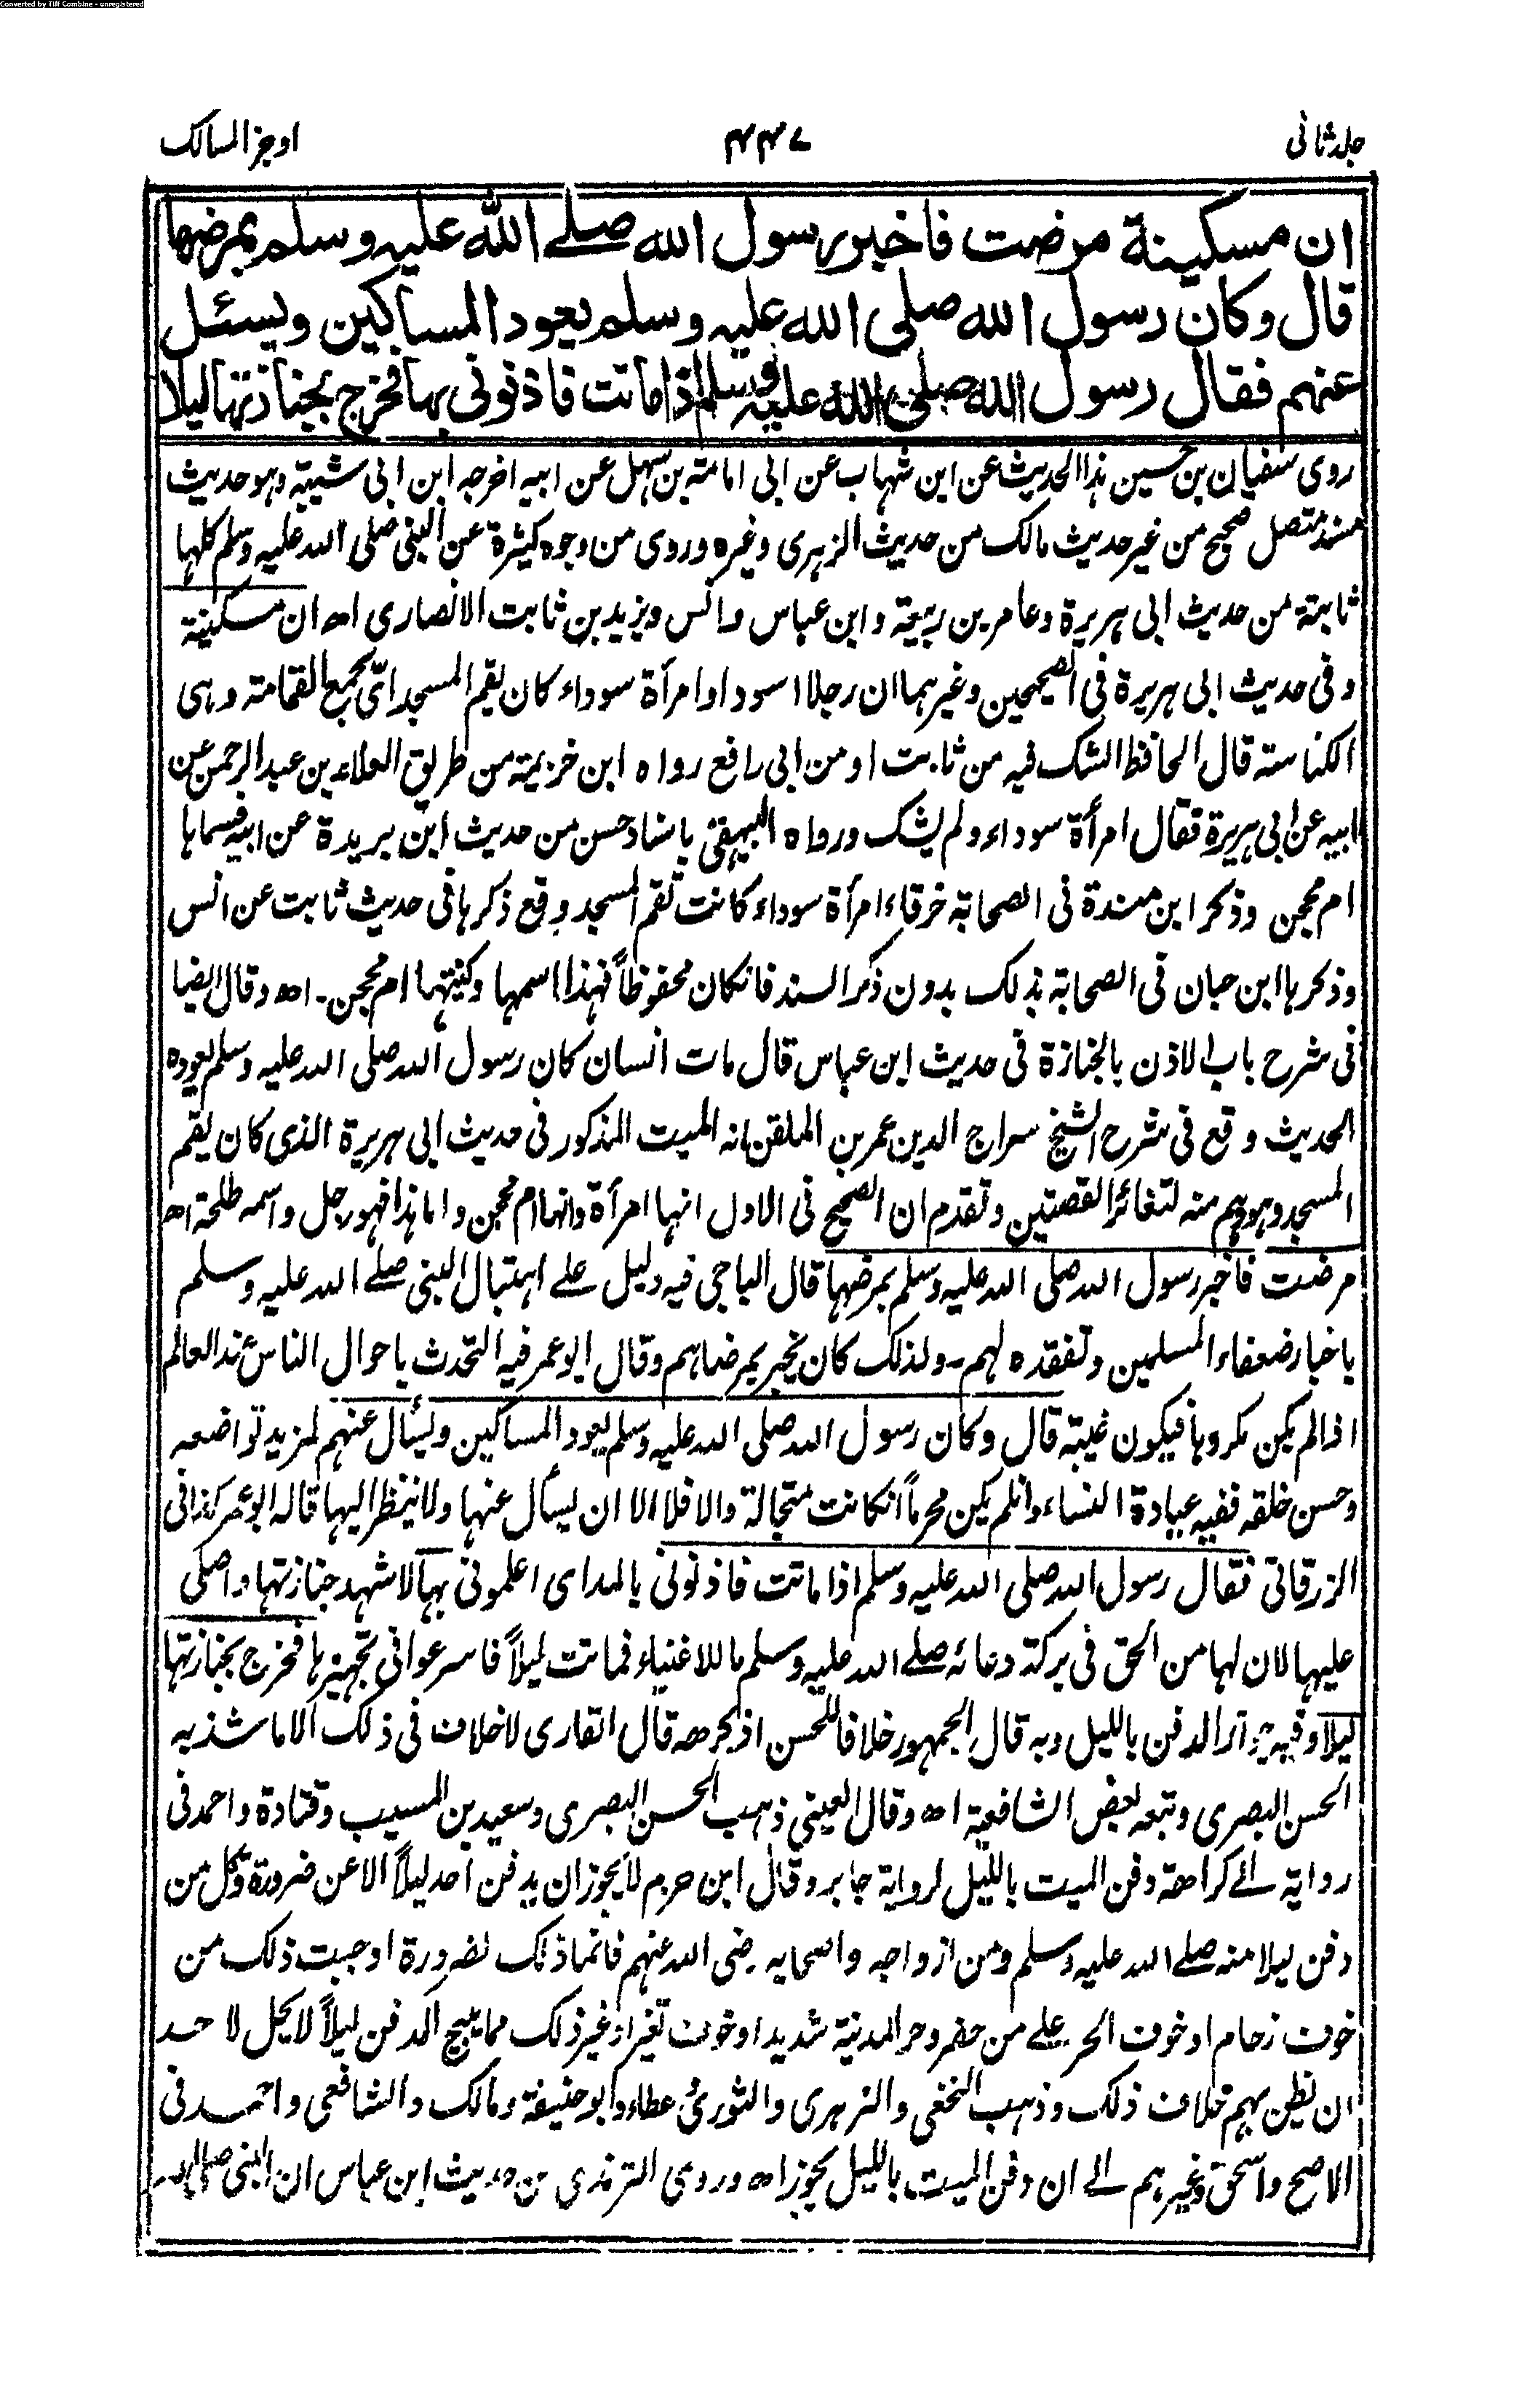 Converted by Tiff Combine - unregistered
جلد ثانی ۴۴۷ اوجز المسالک
ان مسكينة مرضت فاخبر رسول الله صلے الله عليه وسلم بمرضها
قال وكان رسول الله صلى الله عليه وسلم يعود المساكين ويسئل
عنهم فقال رسول الله صلى الله عليه وسلم اذا ماتت فاذنونى بها فخرج بجنازتها ليلا
روى سفيان بن حسين هذا الحديث عن ابن شهاب عن ابى امامة بن سهل عن ابيه اخرجه ابن ابى شيبة وهو حديث
مسند متصل صحيح من غير حديث مالك من حديث الزهرى وغيره وروى من وجوه كثيرة عن النبى صلى الله عليه وسلم كلها
ثابتة من حديث ابى هريرة وعامر بن ربيعة وابن عباس وانس ويزيد بن ثابت الانصارى اھ ان مسكينة
وفى حديث ابى هريرة فى الصحيحين وغيرهما ان رجلا اسود او امرأة سوداء كان يقم المسجد اى يجمع القمامة وهى
الكناسة قال الحافظ الشك فيه من ثابت او من ابى رافع رواه ابن خزيمة من طريق العلاء بن عبد الرحمن عن
ابيه عن ابى هريرة فقال امرأة سوداء ولم يشك ورواه البيهقى باسناد حسن من حديث ابن بريدة عن ابيه فسماها
ام محجن وذكر ابن مندة فى الصحابة خرقاء امرأة سوداء كانت تقم المسجد وقع ذكرها فى حديث ثابت عن انس
وذكرها ابن حبان فى الصحابة بذلك بدون ذكر السند فانكان محفوظاً فهذا اسمها وكنيتها ام محجن۔ اھ وقال ايضا
فى شرح باب الاذن بالجنازة فى حديث ابن عباس قال مات انسان كان رسول الله صلى الله عليه وسلم يعوده
الحديث وقع فى شرح الشيخ سراج الدين عمر بن الملقن انه الميت المذكور فى حديث ابى هريرة الذى كان يقم
المسجد وهو وهم منه لتغائر القصتين وتقدم ان الصحيح فى الاول انها امرأة وانها ام محجن واما هذا فهو رجل واسمه طلحة اھ
مرضت فاخبر رسول الله صلى الله عليه وسلم بمرضها قال الباجى فيه دليل على اهتبال النبى صلے الله عليه وسلم
باخبار ضعفاء المسلمين وتفقده لهم۔ ولذلك كان يخبر بمرضاهم وقال ابو عمر فيه التحدث باحوال الناس عند العالم
اذا لم يكن مكروها فيكون غيبة قال وكان رسول الله صلى الله عليه وسلم يعود المساكين ويسأل عنهم لمزيد تواضعه
وحسن خلقه ففيه عيادة النساء وانلم يكن محرماً انكانت متجالة والا فلا الا ان يسأل عنها ولا ينظر اليها قاله ابو عمر كذا فى
الزرقانى فقال رسول الله صلى الله عليه وسلم اذا ماتت فاذنونى بالمد اى اعلمونى بها لاشهد جنازتها واصلى
عليها لان لها من الحق فى بركة دعائه صلے الله عليه وسلم ما للاغنياء فماتت ليلاً فاسرعوا فى تجهيزها فخرج بجنازتها
ليلا وفيه جواز الدفن بالليل وبه قال الجمهور خلافا للحسن اذ كرهه قال القارى لا خلاف فى ذلك الا ما شذ به
الحسن البصرى وتبعه بعض الشافعية اھ وقال العينى ذهب الحسن البصرى وسعيد بن المسيب وقتادة واحمد فى
رواية الے كراهة دفن الميت بالليل لرواية جابر وقال ابن حزم لا يجوز ان يدفن احد ليلاً الا عن ضرورة وكل من
دفن ليلا منه صلے الله عليه وسلم ومن ازواجه واصحابه رضى الله عنهم فانما ذلك لضرورة اوجبت ذلك من
خوف زحام او خوف الحر على من حضر وحر المدينة شديد او خوف تغير او غير ذلك مما يبيح الدفن ليلاً لا يحل لاحد
ان يظن بهم خلاف ذلك وذهب النخعى والزهرى والثورى عطاء وابو حنيفة ومالك والشافعى واحمد فى
الاصح واسحق وغيرهم الے ان دفن الميت بالليل يجوز اھ وروى الترمذى من حديث ابن عباس ان النبى صلى الله